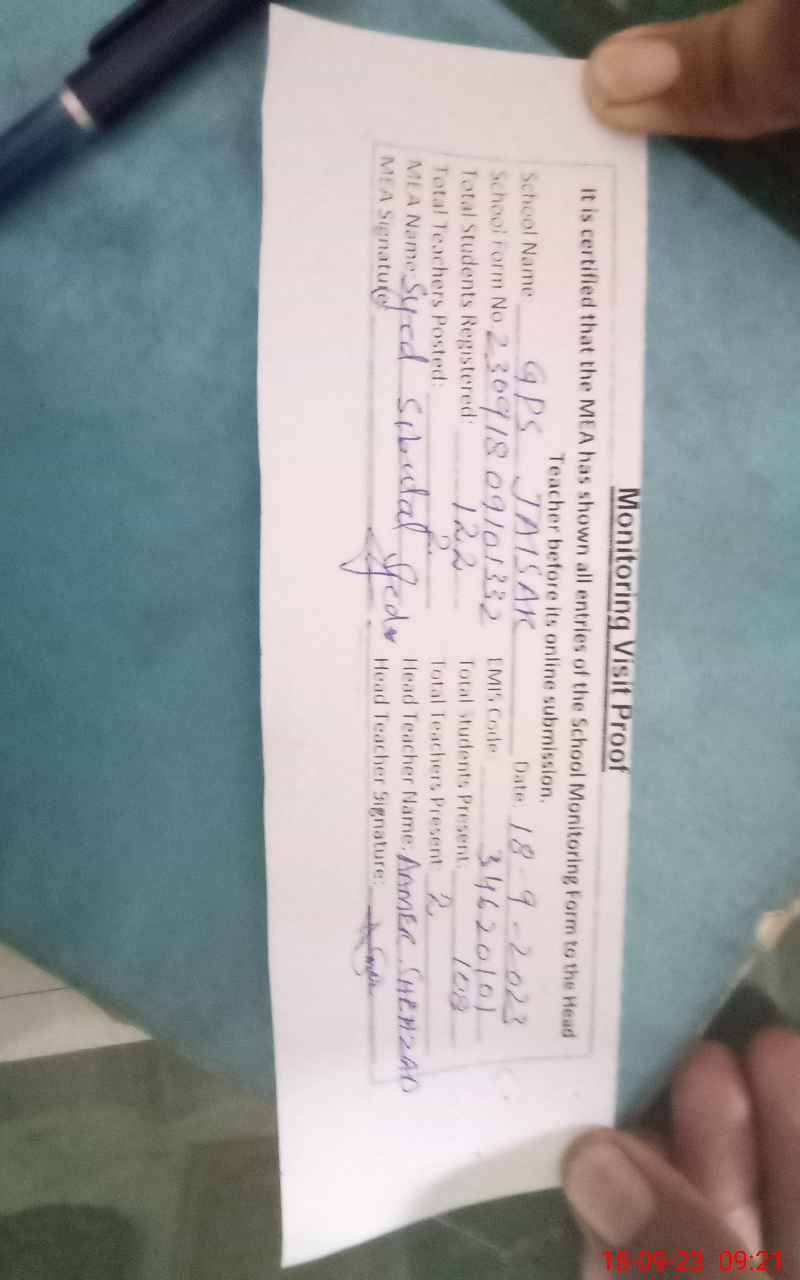 Monitoring Visit Proof
It is certified that the MEA has shown all entries of the School Monitoring Form to the Head
Teacher before its online submission.
School Name: GPS JAISAK Date: 18-9-2023
School Form No. 23091809101332 EMIS Code: 34620101
Total Students Registered: 122 Total Students Present: 108
Total Teachers Posted: 2 Total Teachers Present: 2
MEA Name: Syed Head Teacher Name: AAMER SHEHZAD
MEA Signature: Head Teacher Signature:
18-09-23 09:21